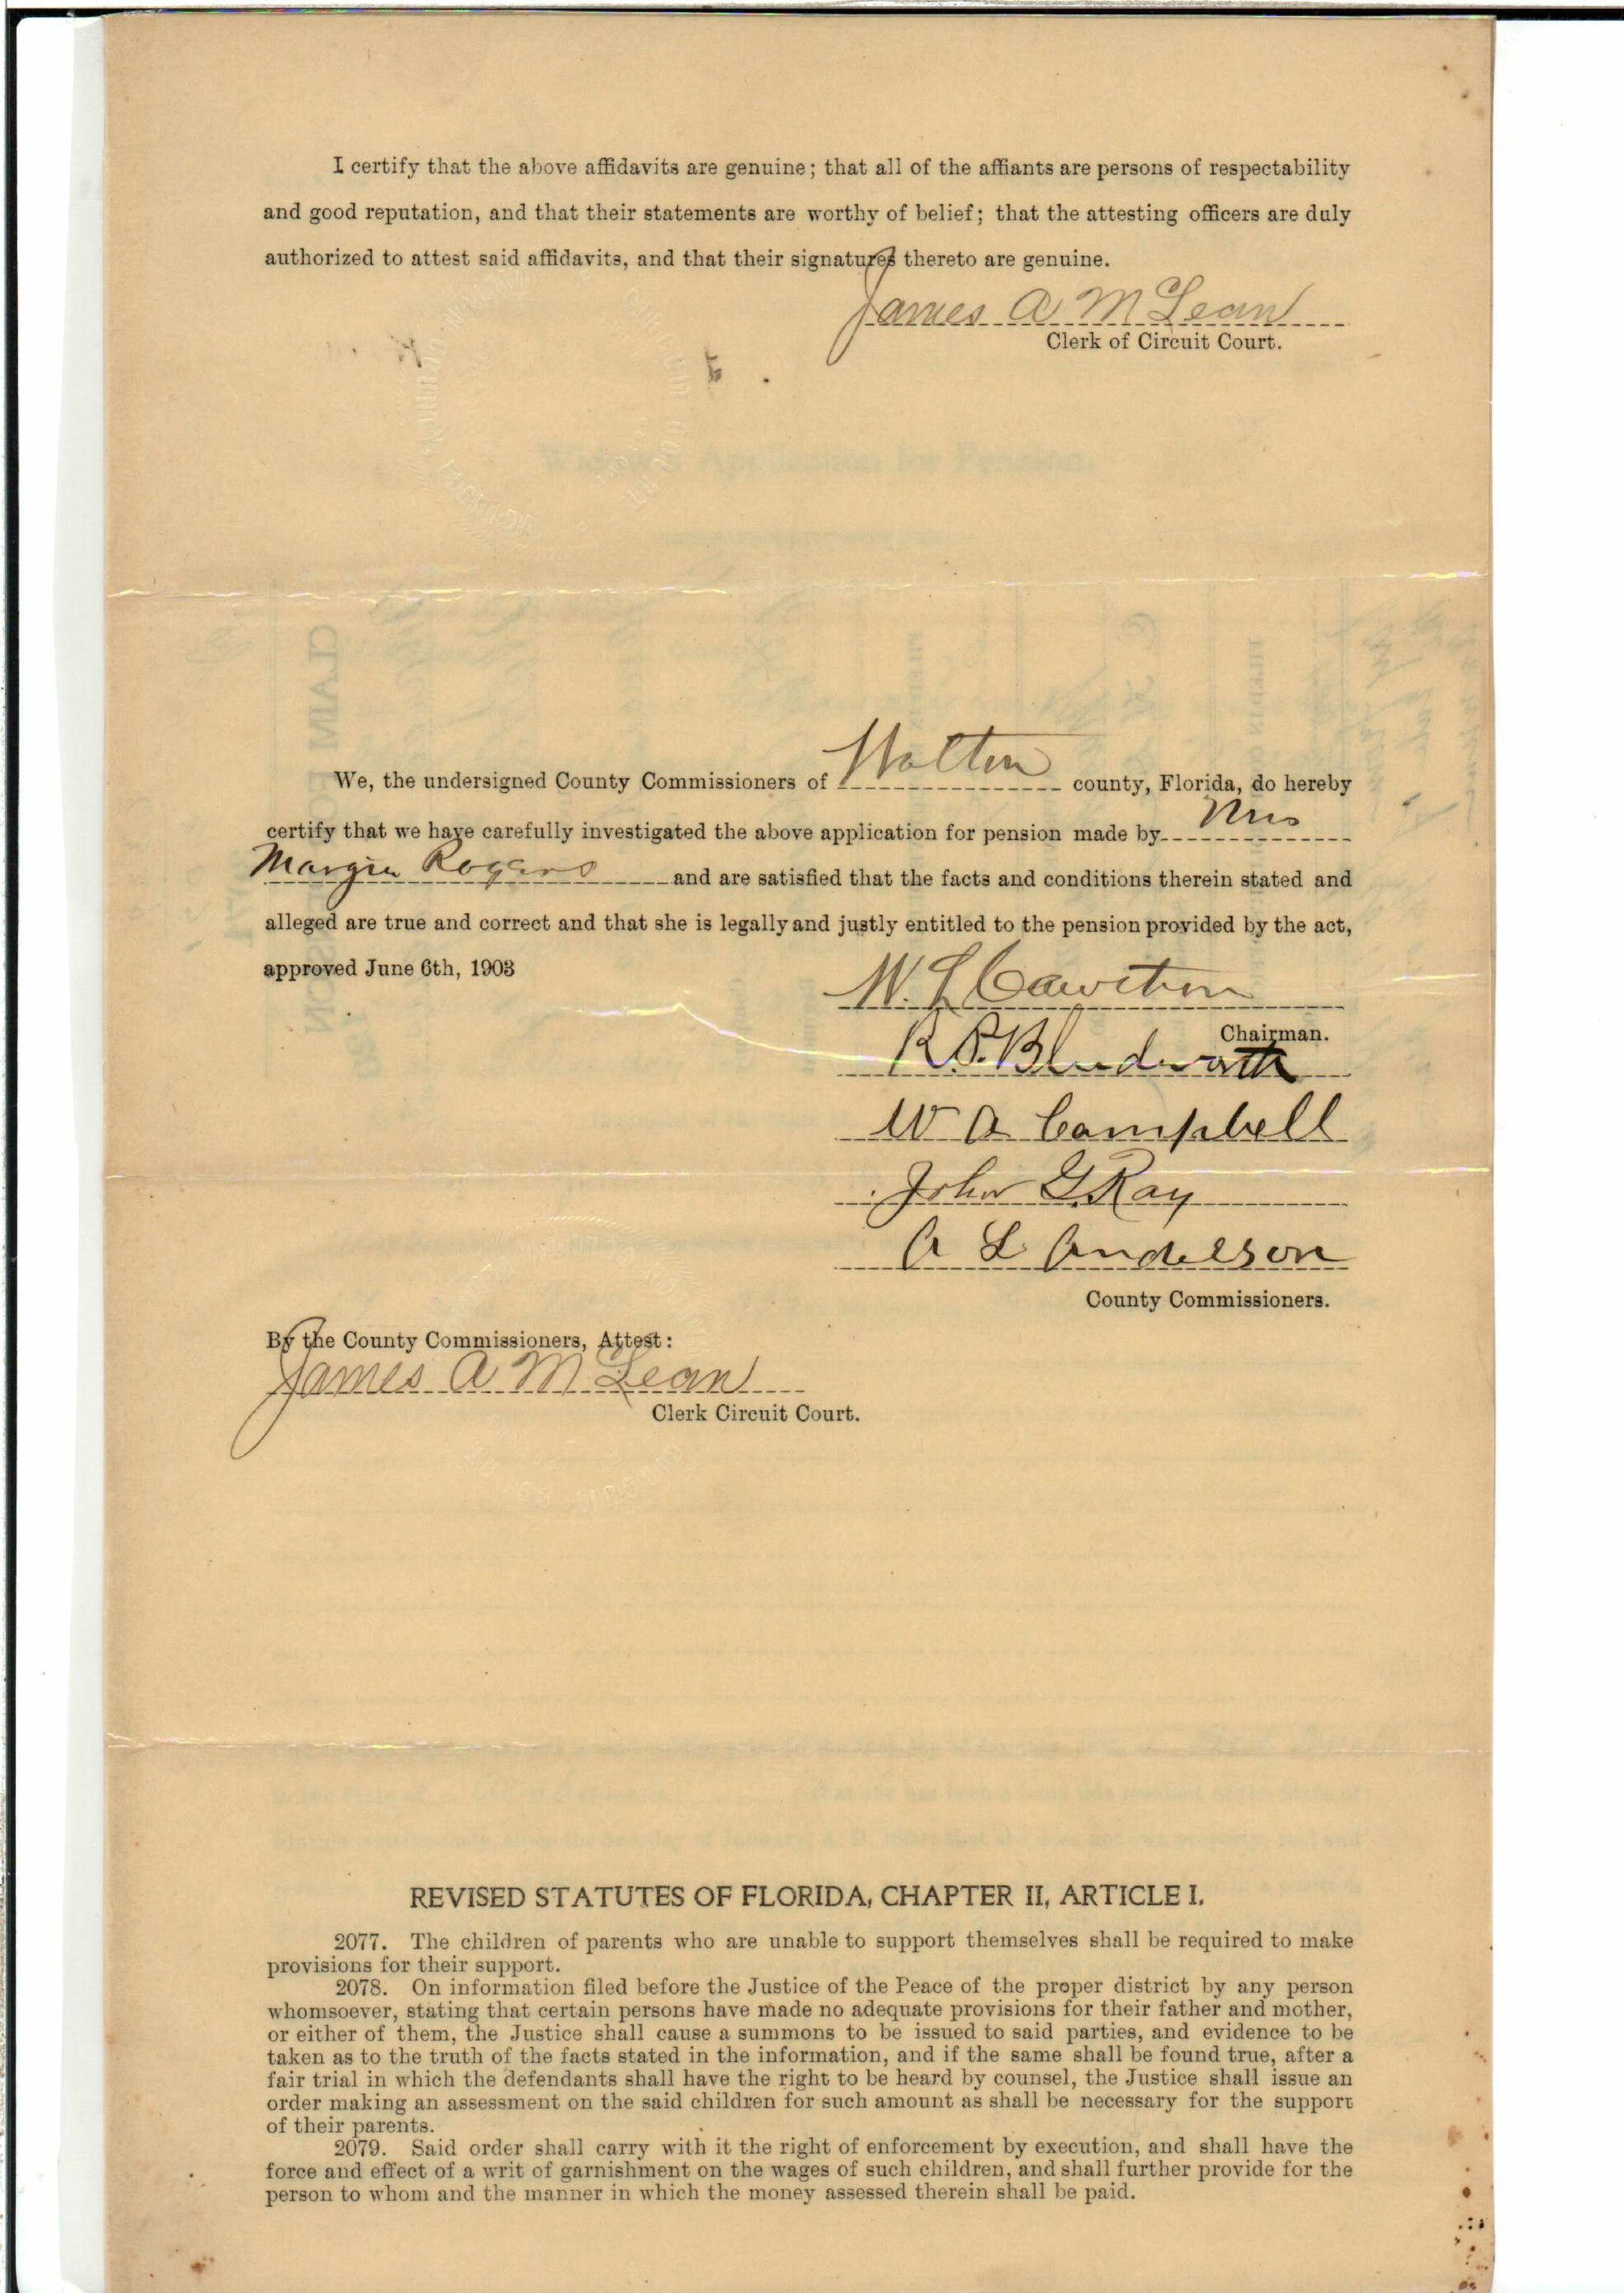 I certify that the above affidavits are genuine; that all of the affiants are persons of respectability
and good reputation, and that their statements are worthy of belief; that the attesting officers are duly
authorized to attest said affidavits, and that their signatures thereto are genuine.
James A McLean
Clerk of Circuit Court.
Widow's Application for Pension.
We, the undersigned County Commissioners of Walton county, Florida, do hereby
certify that we have carefully investigated the above application for pension made by Mrs
Margin Rogers and are satisfied that the facts and conditions therein stated and
alleged are true and correct and that she is legally and justly entitled to the pension provided by the act,
approved June 6th, 1903
W. L Cawthon
Chairman.
R. P. Bludworth
W A Campbell
John G. Ray
A L Anderson
County Commissioners.
By the County Commissioners, Attest:
James A McLean
Clerk Circuit Court.
REVISED STATUTES OF FLORIDA, CHAPTER II, ARTICLE I.
2077. The children of parents who are unable to support themselves shall be required to make
provisions for their support.
2078. On information filed before the Justice of the Peace of the proper district by any person
whomsoever, stating that certain persons have made no adequate provisions for their father and mother,
or either of them, the Justice shall cause a summons to be issued to said parties, and evidence to be
taken as to the truth of the facts stated in the information, and if the same shall be found true, after a
fair trial in which the defendants shall have the right to be heard by counsel, the Justice shall issue an
order making an assessment on the said children for such amount as shall be necessary for the support
of their parents.
2079. Said order shall carry with it the right of enforcement by execution, and shall have the
force and effect of a writ of garnishment on the wages of such children, and shall further provide for the
person to whom and the manner in which the money assessed therein shall be paid.